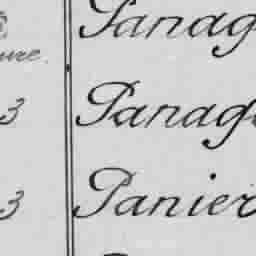 Panag
ure.
3 Panag
3 Panier